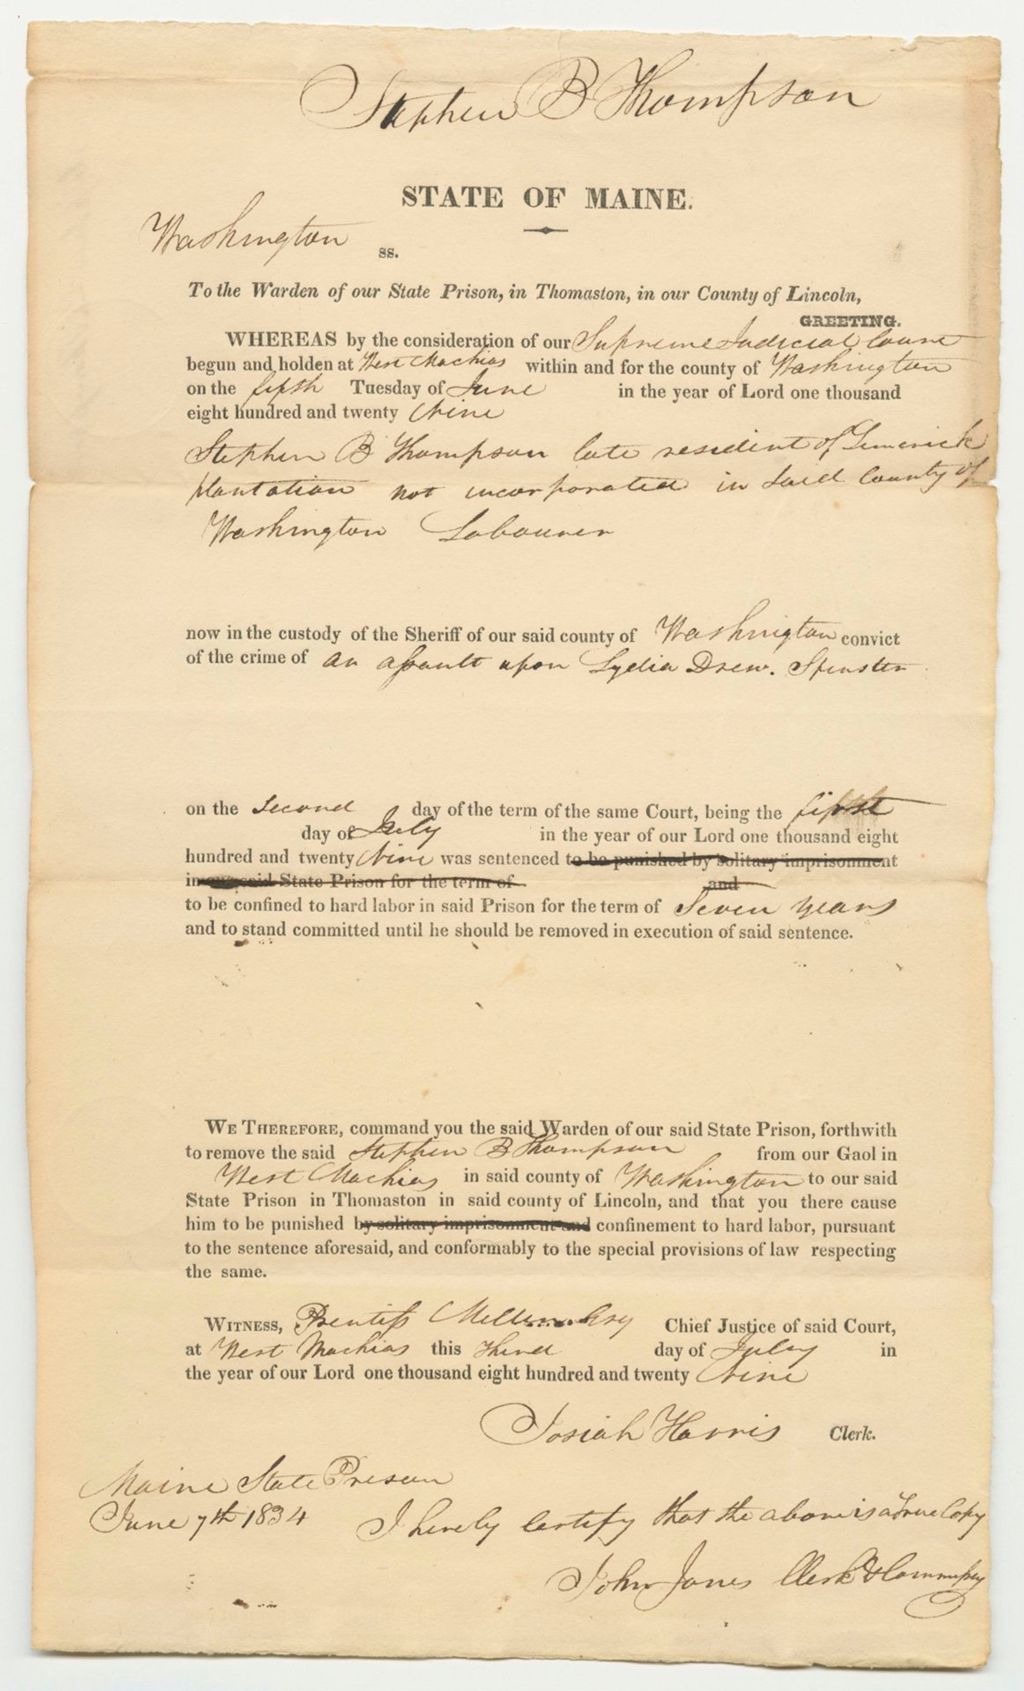 Stephen B Thompson
STATE OF MAINE.
Washington ss.
To the Warden of our State Prison, in Thomaston, in our County of Lincoln,
GREETING.
WHEREAS by the consideration of our Supreme Judicial Court
begun and holden at West Machias within and for the county of Washington
on the fifth Tuesday of June in the year of Lord one thousand
eight hundred and twenty Nine
Stephen B Thompson late resident of Limerick
plantation not incorporated in said County of
Washington Labourer
now in the custody of the Sheriff of our said county of Washington convict
of the crime of an assault upon Lydia Drew. Spinster
on the second day of the term of the same Court, being the first
day of July in the year of our Lord one thousand eight
hundred and twenty Nine was sentenced to be punished by solitary imprisonment
in our said State Prison for the term of and
to be confined to hard labor in said Prison for the term of Seven years
and to stand committed until he should be removed in execution of said sentence.
WE THEREFORE, command you the said Warden of our said State Prison, forthwith
to remove the said Stephen B Thompson from our Gaol in
West Machias in said county of Washington to our said
State Prison in Thomaston in said county of Lincoln, and that you there cause
him to be punished by solitary imprisonment and confinement to hard labor, pursuant
to the sentence aforesaid, and conformably to the special provisions of law respecting
the same.
WITNESS, Prentiss Mellen Esq Chief Justice of said Court,
at West Machias this third day of July in
the year of our Lord one thousand eight hundred and twenty Nine
Josiah Harris Clerk.
Maine State Prison
June 7th 1834 I hereby certify that the above is a True Copy
John Jones Clerk & Commissy